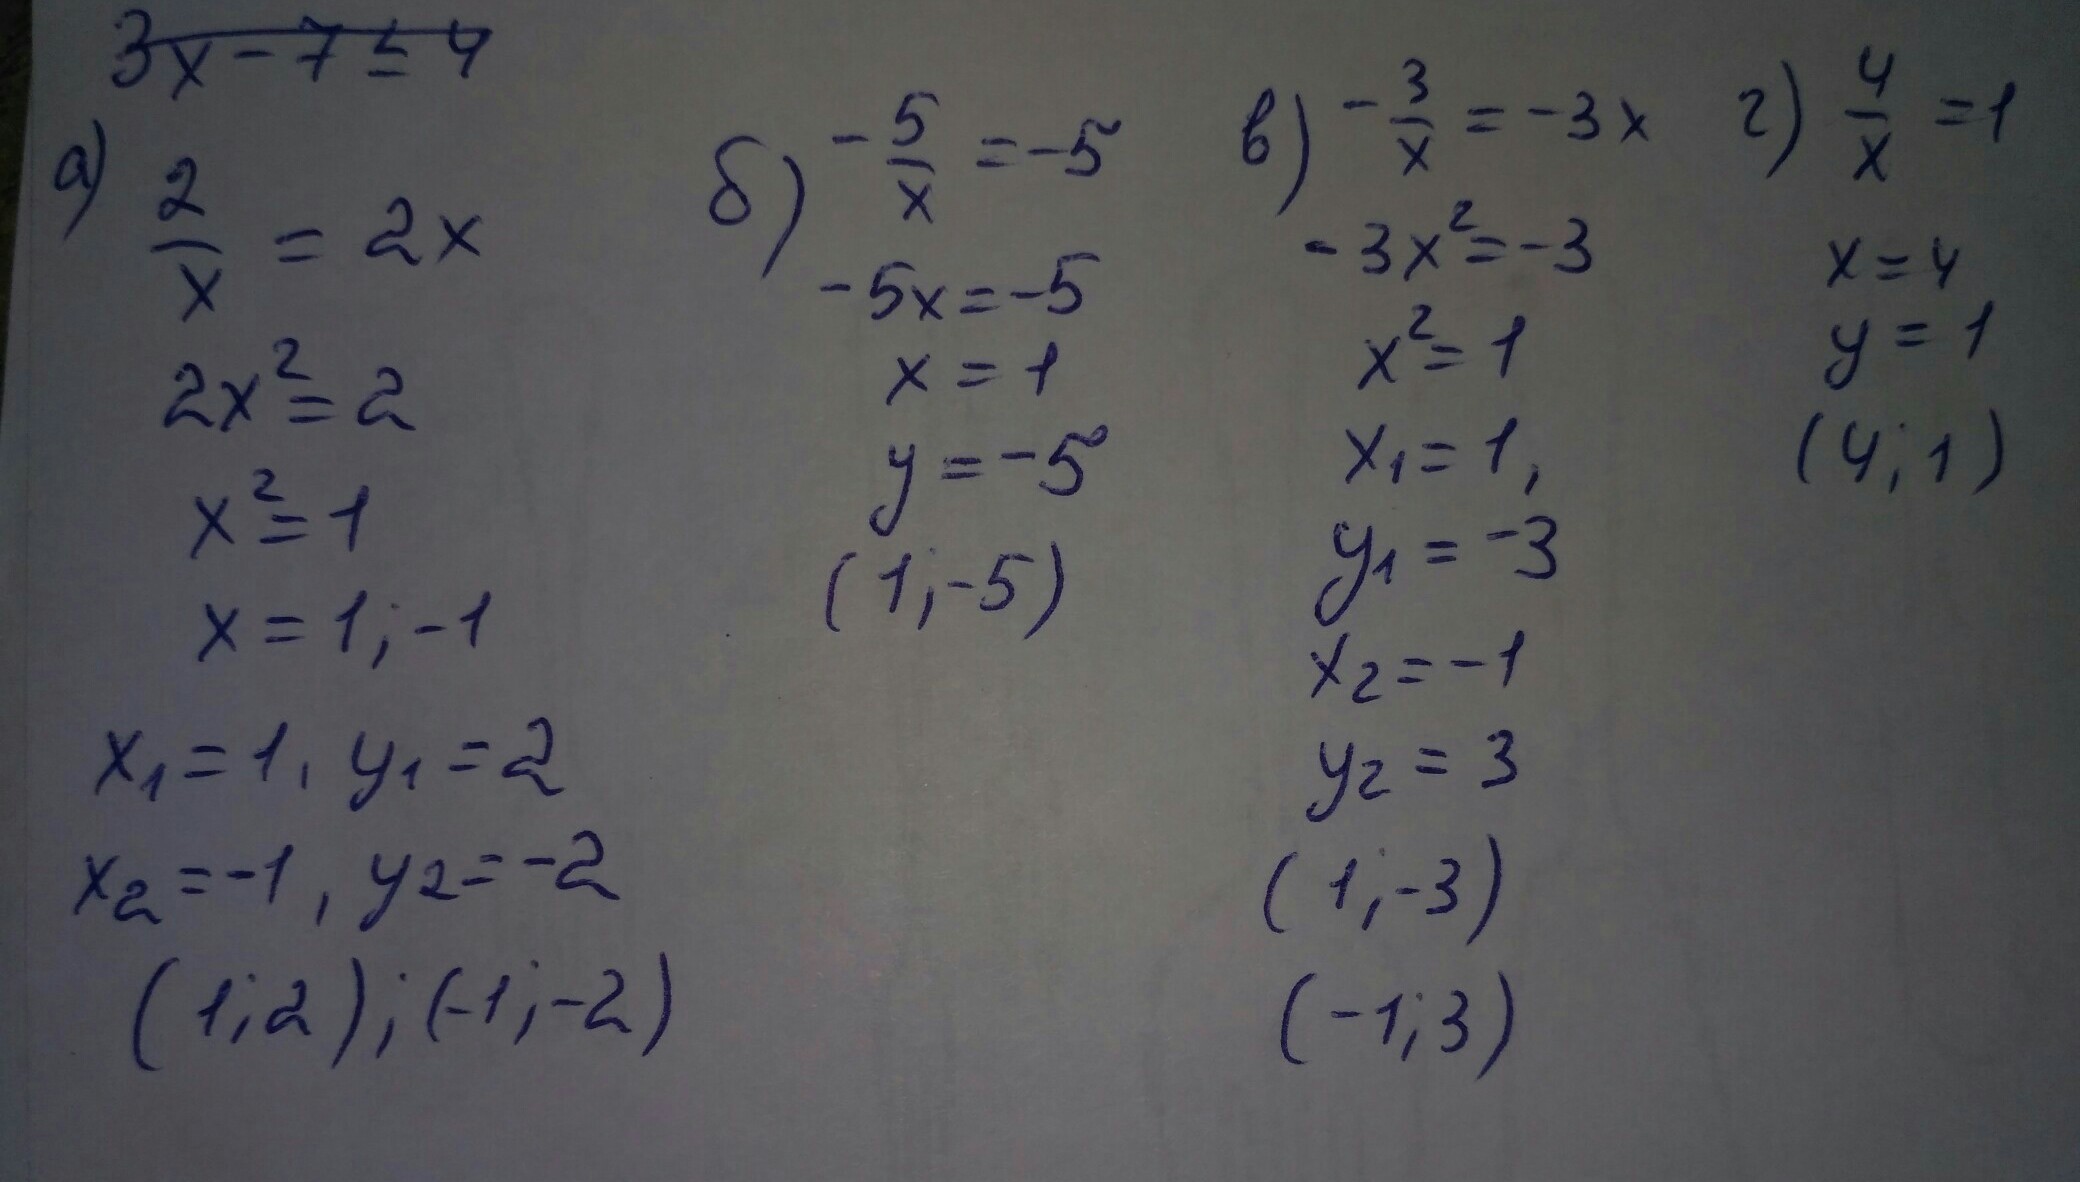 3x - 7 ≤ 4
а) 2/x = 2x
2x² = 2
x² = 1
x = 1; -1
x₁ = 1, y₁ = 2
x₂ = -1, y₂ = -2
(1; 2); (-1; -2)
б) -5/x = -5
-5x = -5
x = 1
y = -5
(1; -5)
в) -3/x = -3x
-3x² = -3
x² = 1
x₁ = 1,
y₁ = -3
x₂ = -1
y₂ = 3
(1; -3)
(-1; 3)
г) 4/x = 1
x = 4
y = 1
(4; 1)